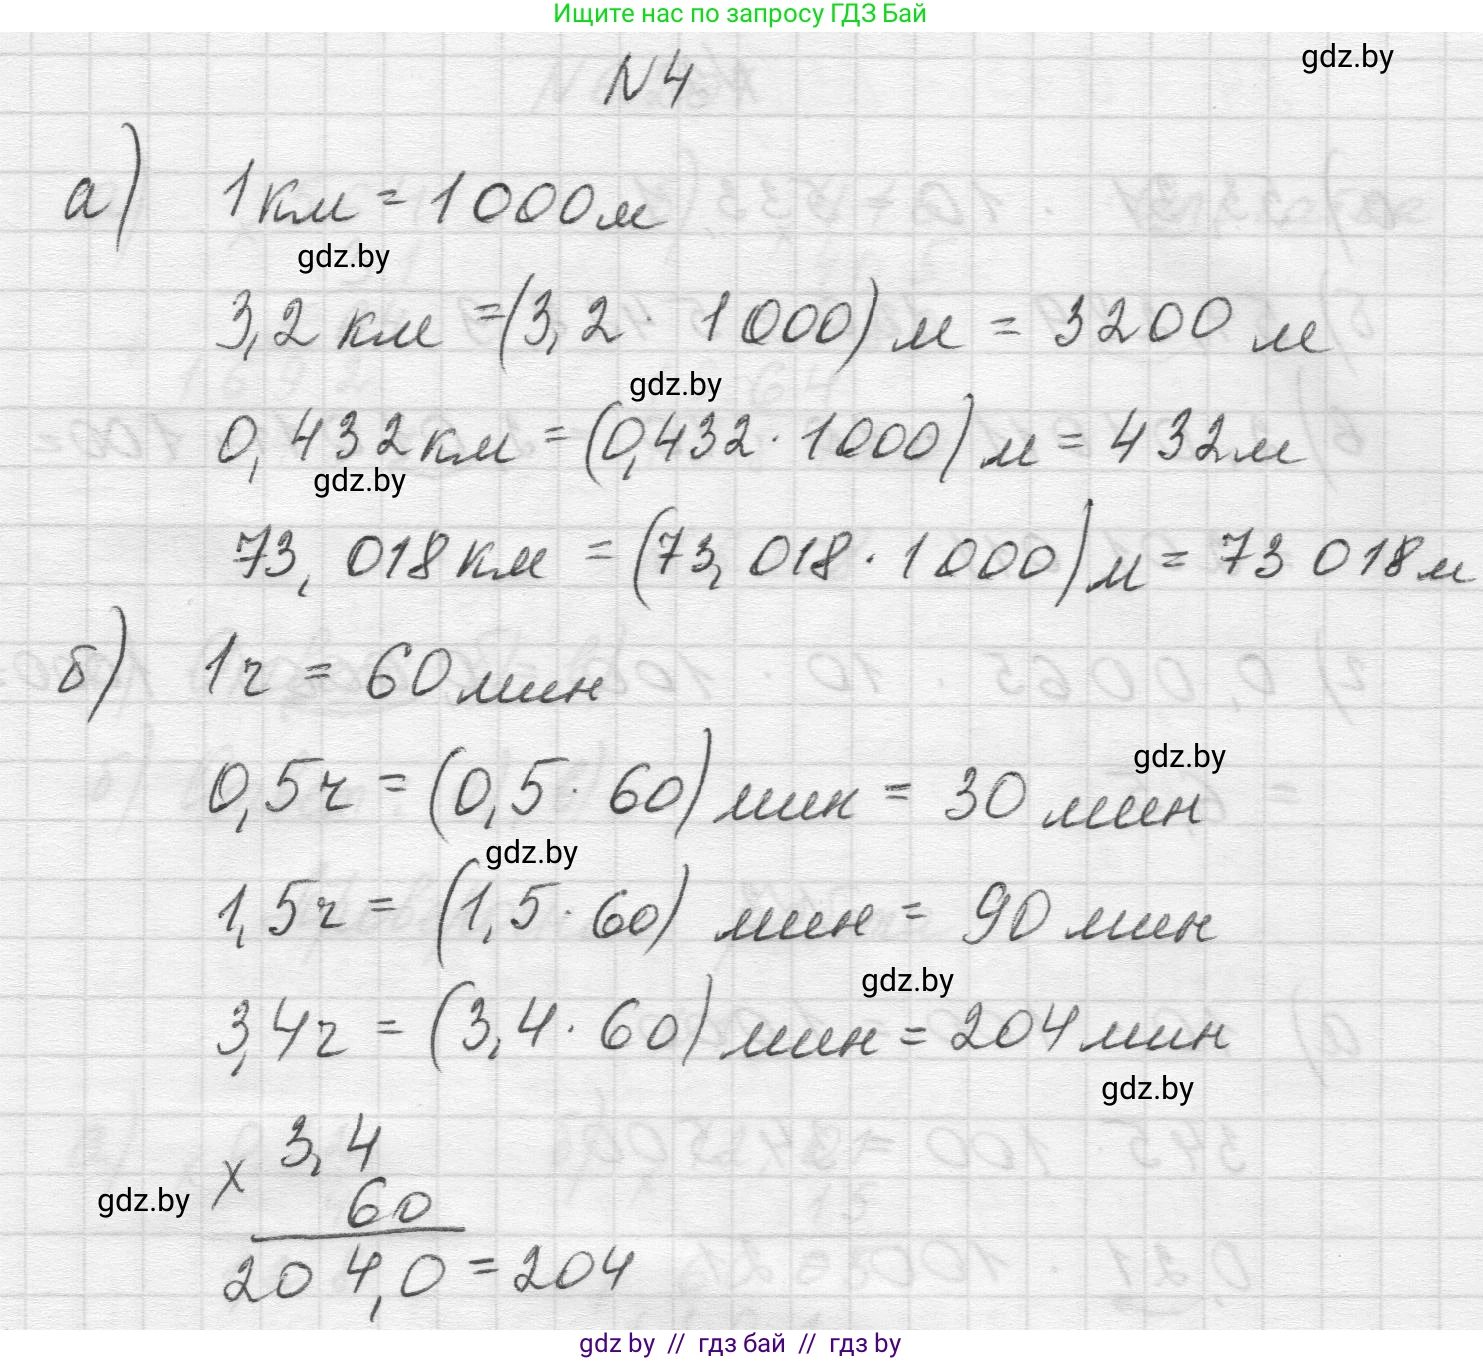 Ищите нас по запросу ГДЗ Бай
gdz.by
N 4
а) 1 км = 1 000 м
gdz.by
3,2 км = (3,2 · 1 000) м = 3200 м
gdz.by
0,432 км = (0,432 · 1 000) м = 432 м
gdz.by
73,018 км = (73,018 · 1 000) м = 73 018 м
б) 1 ч = 60 мин
gdz.by
0,5 ч = (0,5 · 60) мин = 30 мин
gdz.by
1,5 ч = (1,5 · 60) мин = 90 мин
gdz.by
3,4 ч = (3,4 · 60) мин = 204 мин
gdz.by
3,4
×
gdz.by
60
204,0 = 204
gdz by // гдз бай // гдз by